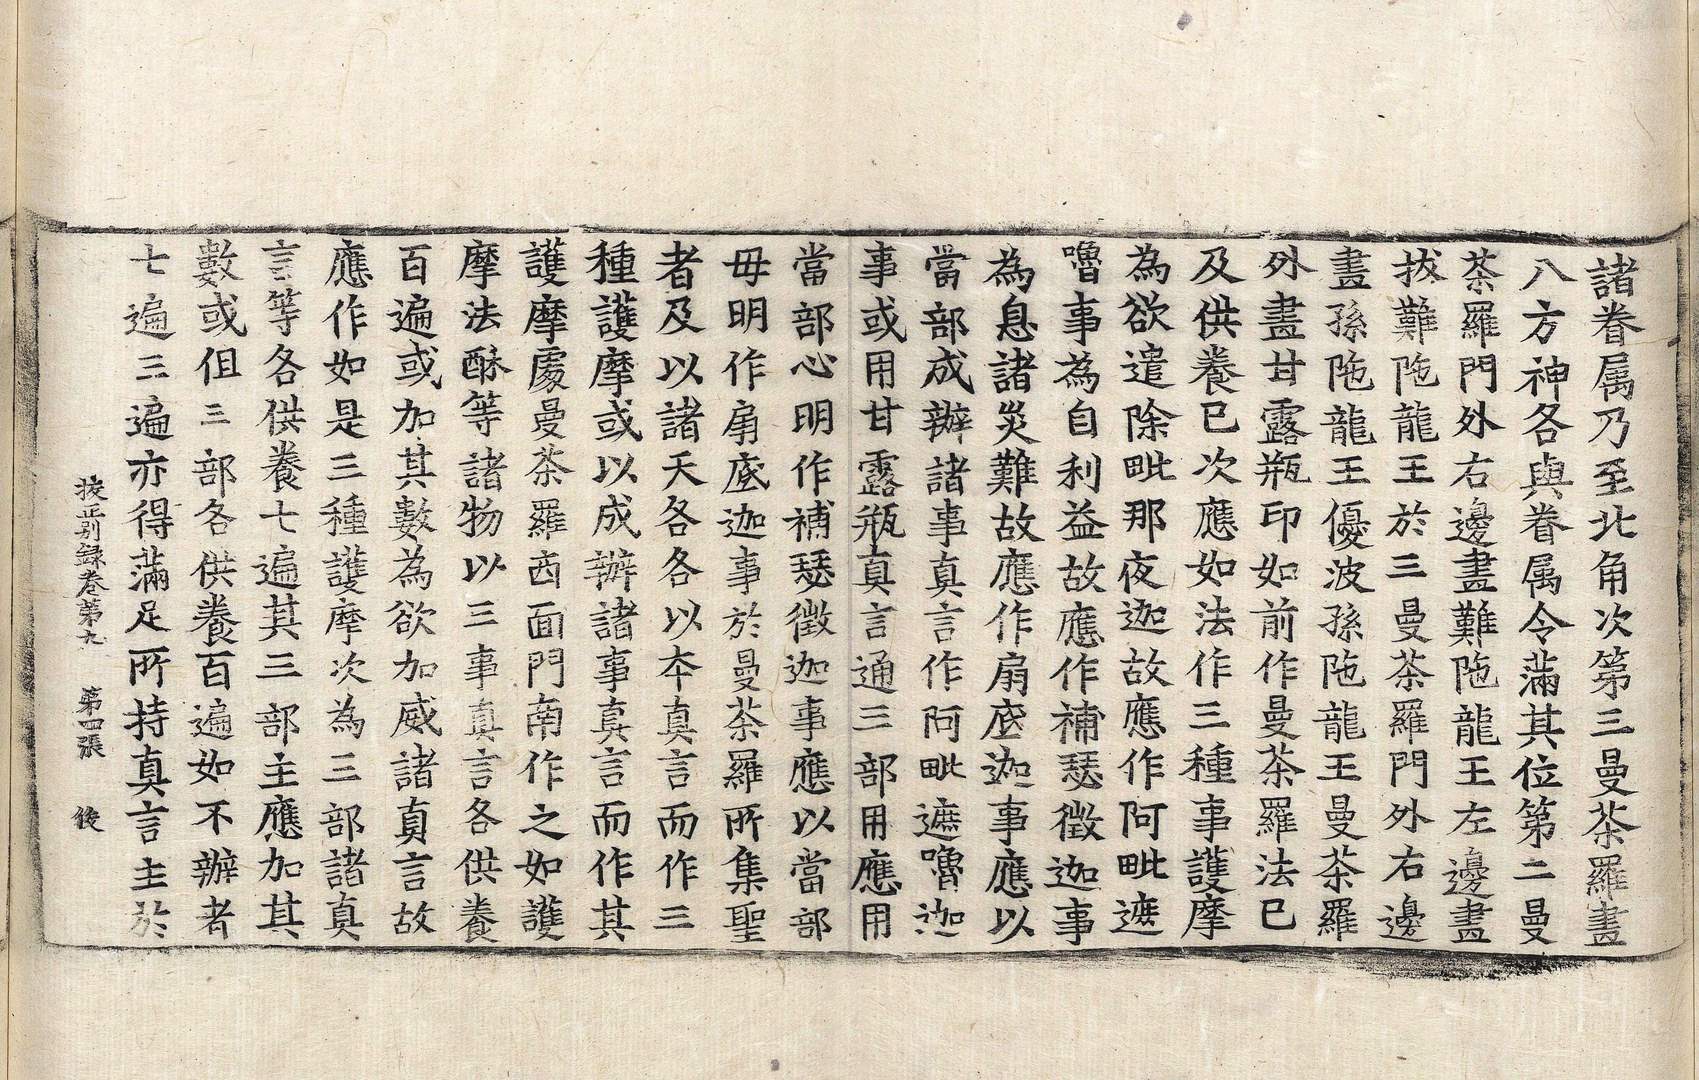 諸眷属乃至北角次第三曼茶羅畫
八方神各與眷属令滿其位第二曼
茶羅門外右邊畫難陁龍王左邊畫
拔難陁龍王於三曼茶羅門外右邊
畫孫陁龍王優波孫陁龍王曼茶羅
外畫甘露瓶印如前作曼茶羅法已
及供養已次應如法作三種事護摩
為欲遣除毗那夜迦故應作阿毗遮
嚕事為自利益故應作補瑟徵迦事
為息諸災難故應作扇底迦事應以
當部成辦諸事真言作阿毗遮嚕迦
事或用甘露瓶真言通三部用應用
當部心明作補瑟徵迦事應以當部
毋明作扇底迦事於曼茶羅所集聖
者及以諸天各各以本真言而作三
種護摩或以成辦諸事真言而作其
護摩處曼茶羅西面門南作之如護
摩法酥等諸物以三事真言各供養
百遍或加其數為欲加威諸真言故
應作如是三種護摩次為三部諸真
言等各供養七遍其三部主應加其
數或但三部各供養百遍如不辦者
七遍三遍亦得滿足所持真言主於
挍正别録卷第九 第四張 俊